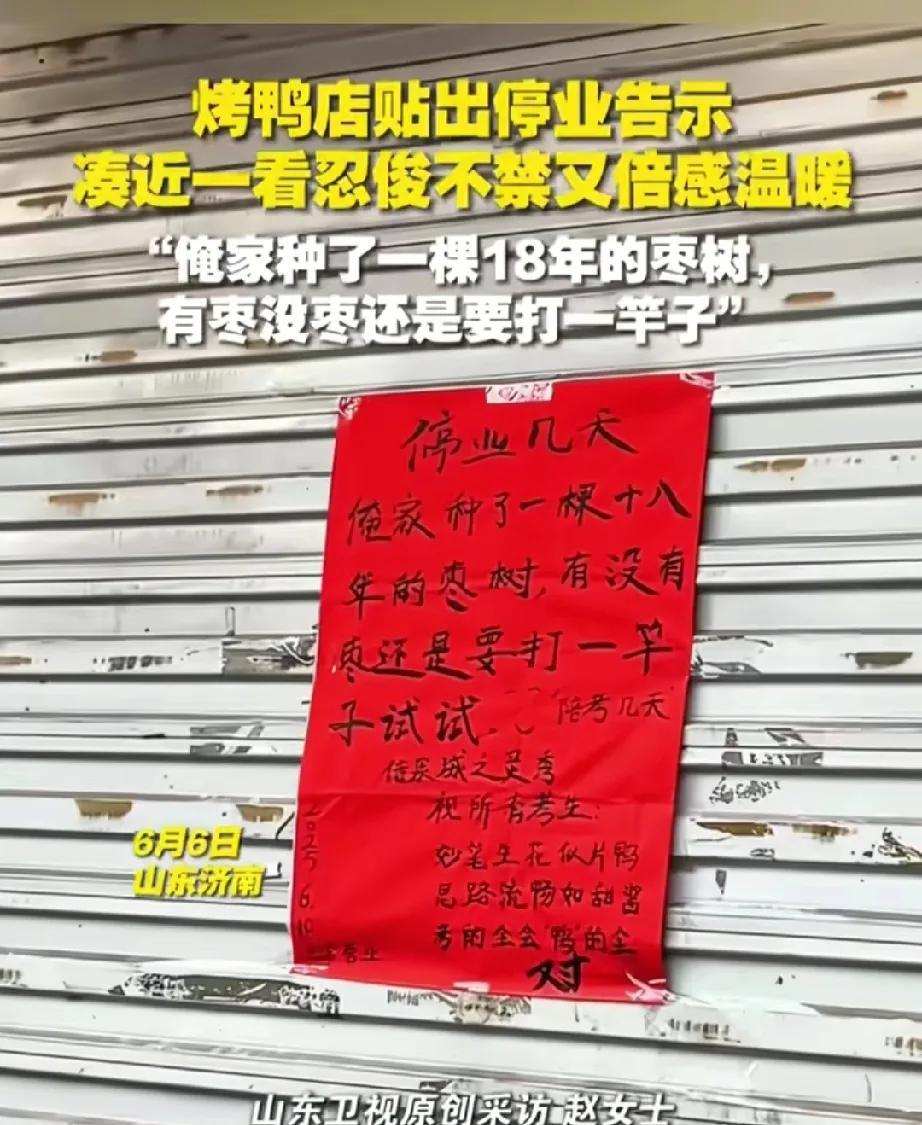 烤鸭店贴出停业告示
凑近一看忍俊不禁又倍感温暖
“俺家种了一棵18年的枣树，
有枣没枣还是要打一竿子”
停业几天
俺家种了一棵十八
年的枣树，有没有
枣还是要打一竿
子试试.
陪考几天
借泉城之灵秀
祝所有考生:
妙笔生花似片鸭
思路流畅如甜酱
考的全会“鸭”的全
对
2025
6.
10
营业
6月6日
山东济南
山东卫视原创采访 赵女士